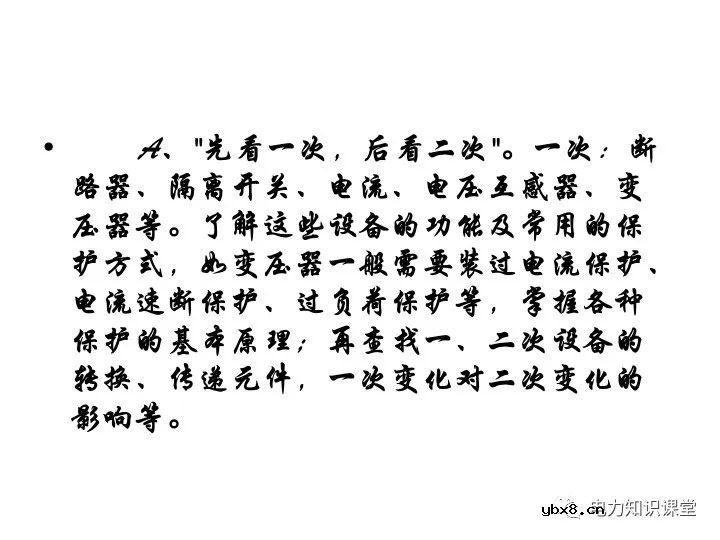 • A、"先看一次，后看二次"。一次：断
路器、隔离开关、电流、电压互感器、变
压器等。了解这些设备的功能及常用的保
护方式，如变压器一般需要装过电流保护、
电流速断保护、过负荷保护等，掌握各种
保护的基本原理；再查找一、二次设备的
转换、传递元件，一次变化对二次变化的
影响等。
电力知识课堂
ybx8.cn